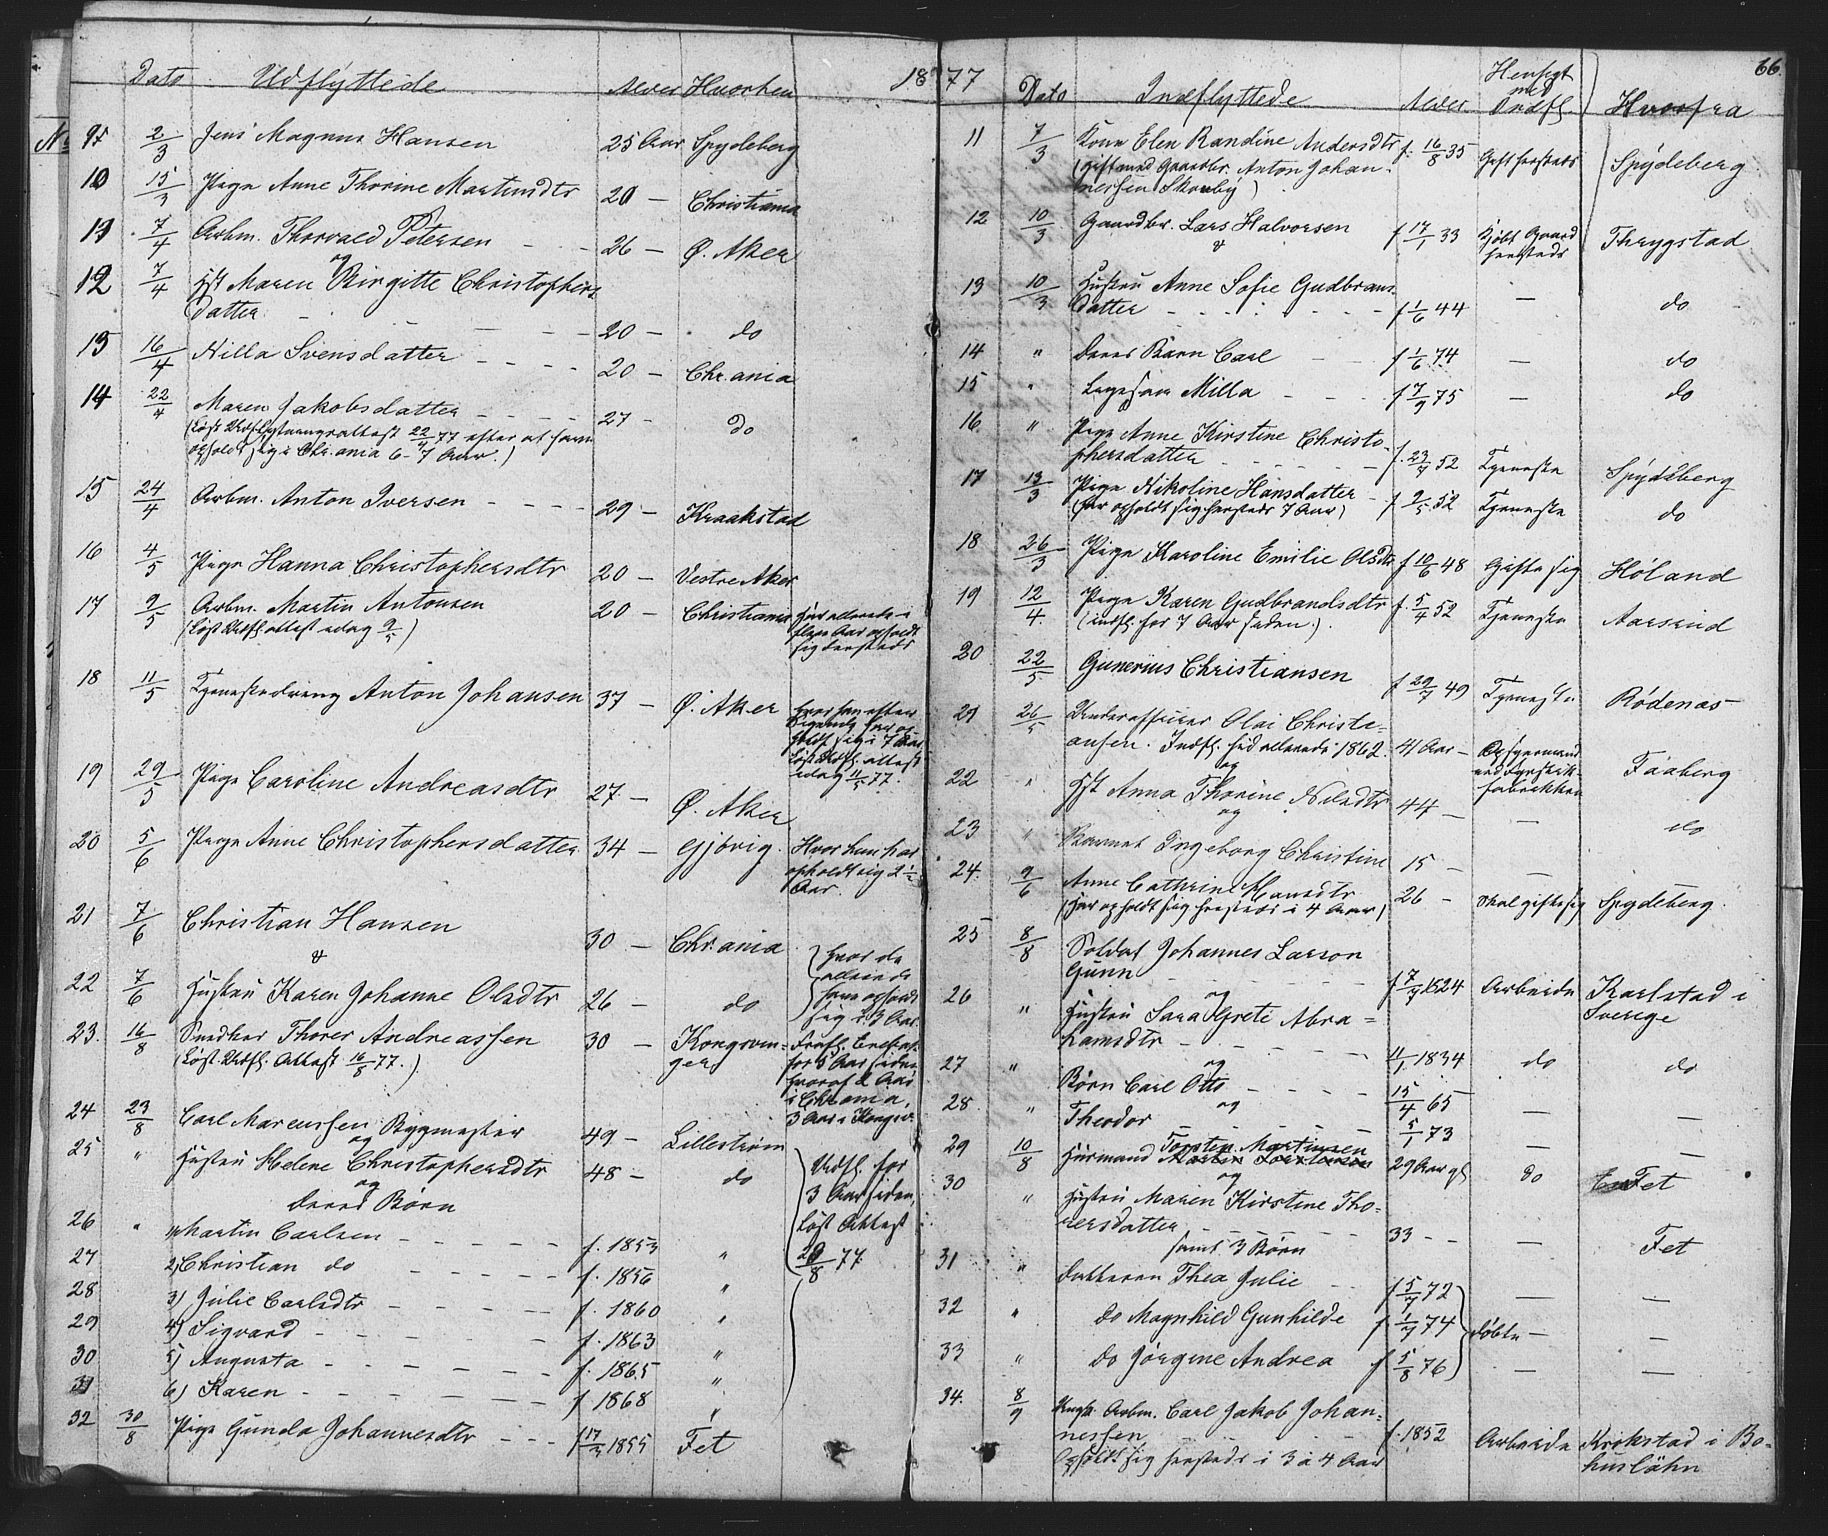 Dato Udflyttede Alder Hvorhen 18
No 9 2/3 Jens Magnus Hansen 25 Aar Spydeberg
10 15/3 Pige Anne Thorine Martinsdtr 20 — Christiania
11 7/4 Arbm. Thorvald Petersen - - 26 — Ø. Aker
og
12 7/4 Hst Maren Birgitte Christophers
datter - - - - 20 — do
13 16/4 Nilla Svensdatter - - - 20 — Chr.ania
14 22/4 Maren Jakobsdatter - - - - 27 - do
(Løst Udflytningsattest 22/4 77 efter at have
opholdt sig i Chr.ania 6-7 Aar.)
15 24/4 Arbm. Anton Iversen - - - - 29 — Kraakstad
16 4/5 Pige Hanna Christophersdtr 20 — Vestre Aker
17 9/5 Arbm. Martin Antonsen 20 — Christiania Har allerede i
(Løst Udfl. attest idag 9/5) flere Aar opholdt
sig dersteds
18 11/5 Tjenestedreng Anton Johansen 37 — Ø. Aker hvor han efter
Sigende har op
holdt sig i 7 Aar
Løst Udfl. attest
idag 11/5 77.
19 29/5 Pige Caroline Andreasdtr 27 — Ø. Aker
20 5/6 Pige Anne Christophersdatter 34 — Gjövig. Hvor hun har
opholdt sig 2 1/2
Aar.
21 7/6 Christian Hansen 30 — Chr.ania
& hvor de
allerede
22 7/6 Hustru Karen Johanne Olsdtr 26 — do have opholdt
sig i 3 Aar.
23. 16/8 Snedker Thorer Andreassen 30 — Kongsvin=
(Løst Udfl. Attest 16/8 77.) ger
for 5 Aar siden
hvoraf 2 Aar
i Chr.ania,
3 Aar i Kongsv.
24 23/8 Carl Marenssen Bygmester 49 — Lillestrøm
og
25 " Hustru Helene Christophersdtr 48 — do Udfl. for
og 3 Aar siden,
deres Børn løst Attest
26 " 1) Martin Carlsen - - - - - f. 1853 " 28/8 77
27 2) Christian do - - - - - f. 1856 "
28 3) Julie Carlsdtr - - - - f. 1860 "
29 4) Sigvard - - - - - f. 1863 "
30 5) Augusta - - - - - f. 1865 "
31 6) Karen - - - - - f. 1868 "
32 30/8 Pige Gunda Johannesdtr - - - f 17/3 1855 Fet
77 66.
Dato Indflyttede Alder Hensigt med Indfl. Hvorfra
11 7/3 Kone Elen Randine Andersdtr f. 16/8 35 Gift hersteds Spydeberg
(gift med Gaardbr. Anton Johan-
nessen Skovby)
12 10/3 Gaardbr. Lars Halvorsen f 17/1 33 Kjöbt Gaard
hersteds Thrygstad
&
13 10/3 Hustru Anne Sofie Gudbrans
datter - - - - - - f 1/6 44 — do
14 " deres Barn Carl - - f 1/6 74 — do
15 " Milla - - - f 7/9 75 — do
16 " Pige Anne Kirstine Christo-
phersdatter - - - - - f. 23/7 52 Tjeneste Spydeberg
17 13/3 Pige Nikoline Hansdatter - f 2/5 52 Tjeneste do
(har opholdt sig hersteds 7 Aar)
18 26/3 Pige Karoline Emilie Olsdtr f 10/6 48 Gifte sig Höland
19 12/4 Pige Karen Gudbrandsdtr f. 5/4 52 Tjeneste Aursrud
(indfl. for 7 Aar siden.)
20 22/5 Gunerius Christiansen f 29/7 49 Tjeneste Rödenas
21 26/5 Underofficer Olai Christi=
ansen. Indfl. hid allerede 1862. 41 Aar — Opsynsmand
ved
fabrikken Faaberg
og
22 " Hst Anna Thorine Nilsdtr 44 — — do
og
23 " Barnet Ingeborg Christine 15 — — —
24. 9/6 Anne Cathrine Hansdtr 26 — skal gifte sig Spydeberg.
(har opholdt sig hersteds i 4 Aar)
25 8/8 Soldat Johannes Larson
Gunn - - - f 7/7 1824 Arbeide Karlstad i
Sverige
og
26 " Hustru Sara Greti Abra=
hamsdtr - - - - - 11/1 1834 do do
og
27 " Börn Carl Otto - - - - 15/4 65 — —
og
28. " Theodor - - - - - 5/1 73 — —
29 10/8 Huusmand Torsten Martinsen 29 Aar gl do Fet
og
30 " Hustru Maren Kirstine Tho-
resdatter - - - - 33 - - — Fet
samt 3 Børn
31 " Datteren Thea Julie - f 5/7 72 — —
32 " do Magnhild Gunhilde f. 1/7 74 döbte — —
33 " do Jörgine Andrea f 5/8 76 — —
34. 8/9 Ungk. Arbm. Carl Jakob Johan=
nessen - - f. 1852 Arbeide Krokstad i Bo-
huslähn
Opholdt sig hersteds i 3 a 4 Aar